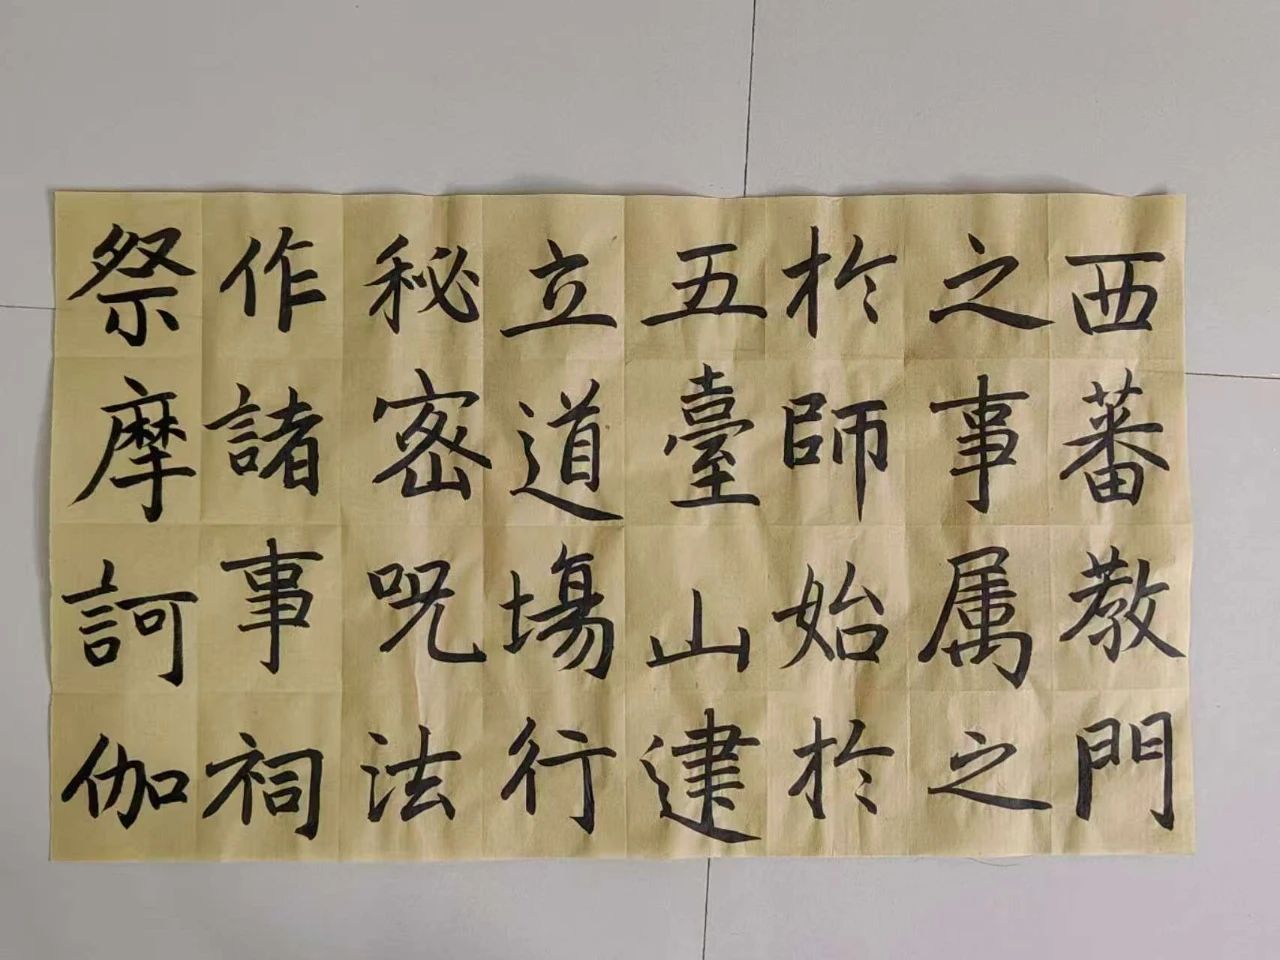 西蕃教門
之事属之
於師始於
五臺山建
立道場行
秘密呪法
作諸事祠
祭摩訶伽